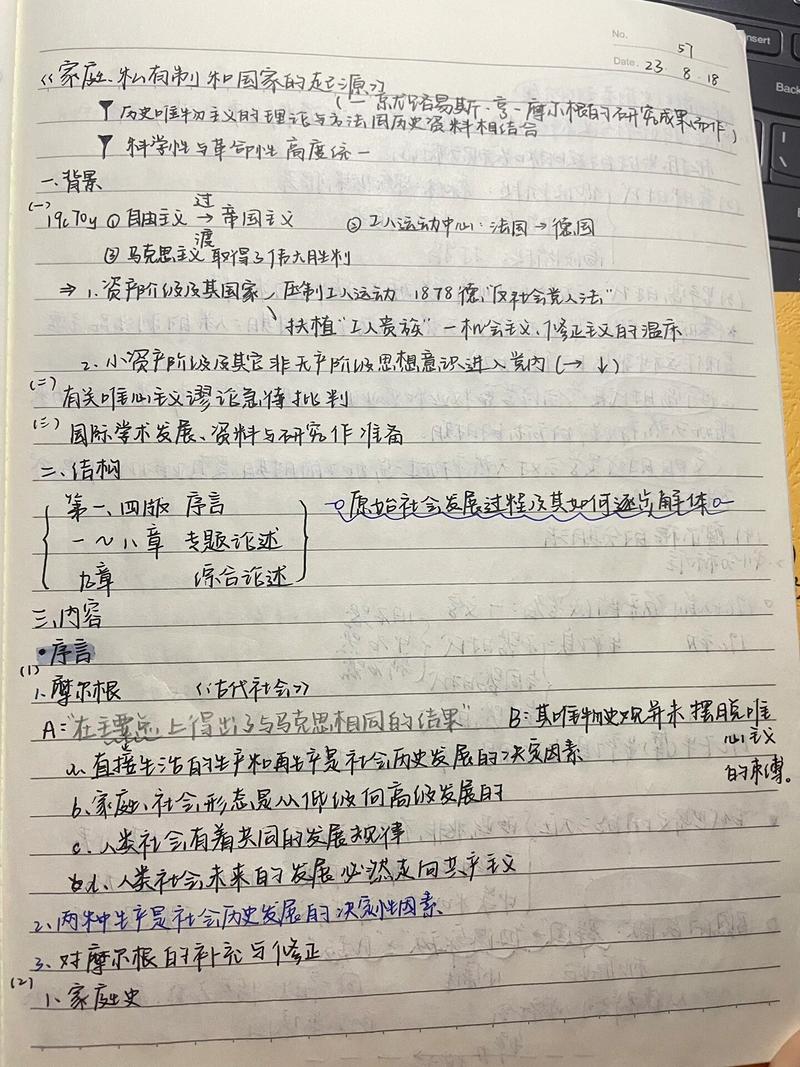 No. 57
Date. 23. 8. 18
《家庭、私有制和国家的起源》
(一 就路易斯·亨·摩尔根的研究成果而作)
▼ 历史唯物主义的理论与方法同历史资料相结合
▼ 科学性与革命性高度统一
一、背景
(一) 19c70y ① 自由主义 过渡→ 帝国主义 ② 工人运动中心：法国→德国
③ 马克思主义取得了伟大胜利
⇒ 1. 资产阶级及其国家 压制工人运动 1878德"反社会党人法"
扶植"工人贵族" —机会主义、修正主义的温床
2. 小资产阶级及其它非无产阶级思想意识进入党内(→ ↓)
(二) 有关唯心主义谬论急待批判
(三) 国际学术发展、资料与研究作准备
二、结构
第一、四版 序言 原始社会发展过程及其如何逐步解体
一~八章 专题论述
九章 综合论述
三、内容
•序言
(1)
1. 摩尔根 《古代社会》
A："在主要点上得出了与马克思相同的结果" B：其唯物史观并未摆脱唯
心主义
的束缚。
a. 直接生活的生产和再生产是社会历史发展的决定因素
b. 家庭、社会形态是从低级向高级发展的
c. 人类社会有着共同的发展规律
d. 人类社会未来的发展必然走向共产主义
2. 两种生产是社会历史发展的决定性因素
3. 对摩尔根的补充与修正
(2)
1. 家庭史
insert
Back